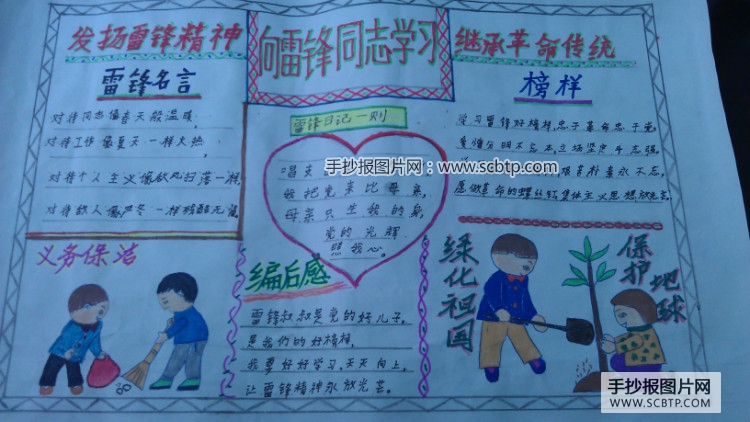 发扬雷锋精神
向雷锋同志学习
继承革命传统
雷锋名言
对待同志像春天般温暖,
对待工作像夏天一样火热,
对待个人主义像秋风扫落一样,
对待敌人像严冬一样残酷无
雷锋日记一则
唱支
我把党来比母亲
母亲只生我的身,
党的光辉
照我心。
榜样
学习雷锋好榜样,忠于革命忠于党,
爱憎分明不忘本,立场坚定斗志强,
愿做革命的螺丝钉,集体主义思想放光芒。
义务保洁
编后感
雷锋叔叔是党的好儿子,
是我们的好榜样,
我要好好学习,天天向上,
让雷锋精神永放光芒。
绿化祖国
保护地球
手抄报图片网：www.scbtp.com
手抄报图片网
WWW.SCBTP.COM